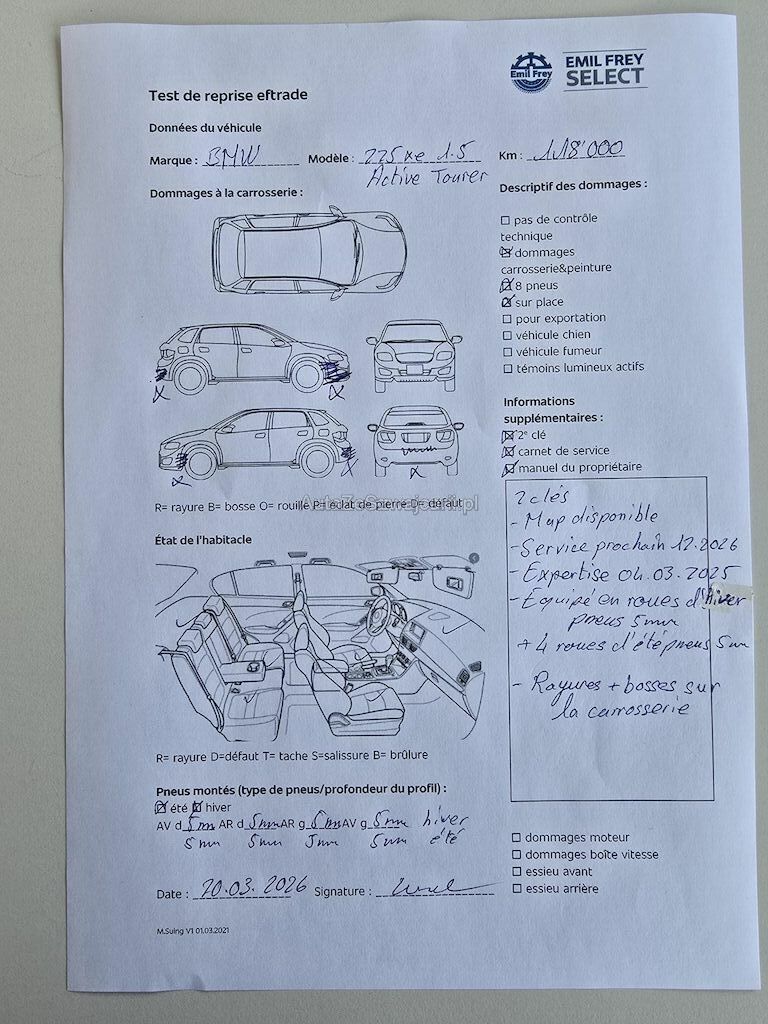 Emil Frey
EMIL FREY
SELECT
Test de reprise eftrade
Données du véhicule
Marque : BMW Modèle : 225 xe 1.5 Km : 118'000
Active Tourer
Dommages à la carrosserie :
Descriptif des dommages :
pas de contrôle
technique
dommages
carrosserie&peinture
8 pneus
sur place
pour exportation
véhicule chien
véhicule fumeur
témoins lumineux actifs
Informations
supplémentaires :
2e clé
carnet de service
manuel du propriétaire
R= rayure B= bosse O= rouille P= éclat de pierre D= défaut
AutoZeSzwajcarii.pl
2 clés
- Map disponible
- Service prochain 12.2026
- Expertise 04.03.2025
- Equipé en roues d'hiver
pneus 5mm
+ 4 roues d'été pneus 5mm
- Rayures + bosses sur
la carrosserie
État de l'habitacle
R= rayure D=défaut T= tache S=salissure B= brûlure
Pneus montés (type de pneus/profondeur du profil) :
été hiver
AV d 5mm AR d 5mm AR g 5mm AV g 5mm hiver
5mm 5mm 5mm 5mm été
Date : 20.03.2026 Signature :
dommages moteur
dommages boîte vitesse
essieu avant
essieu arrière
M.Suing V1 01.03.2021